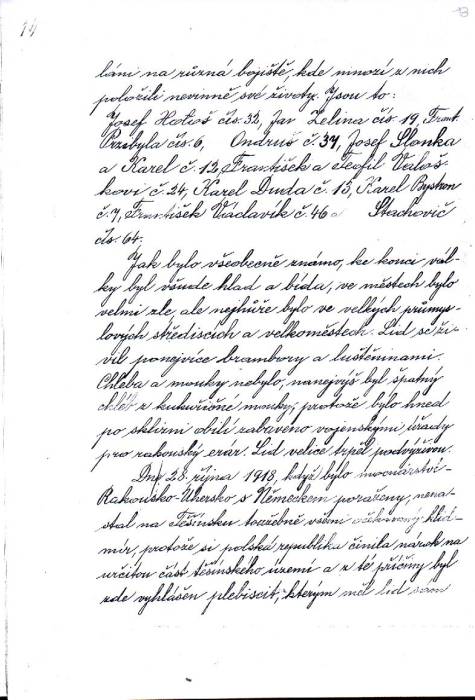 14
láni na různá bojiště, kde mnozí z nich
položili nevinně své životy. Jsou to:
Josef čís. 32, Jan Zelina čís. 19, Frant.
Przibyla čís. 6, Ondruš č. 37, Josef Slonka
a Karel č. 12, František a Teofil Valoš-
kovi č. 24, Karel Duda č. 15, Karel Bystron
č. 7, František Václavík č. 46 a Stachovič
čís. 64.
Jak bylo všeobecně známo, ke konci vál-
ky byl všude hlad a bída, ve městech bylo
velmi zle, ale nejhůře bylo ve velkých průmys-
lových střediscích a velkoměstech. Lid se ži-
vil ponejvíce brambory a luštěninami.
Chleba a mouky nebylo, nanejvýš byl špatný
chléb z kukuřičné mouky, protože bylo hned
po sklizni obilí zabaveno vojenskými úřady
pro rakouský erár. Lid velice trpěl podvýživou.
Dne 28. října 1918, když bylo mocnářství-
Rakousko-Uhersko s Německem poraženy, nena-
stal na Těšínsku toužebně všemi očekávaný klid-
mír, protože si polská republika činila nárok na
určitou část těšínského území a z té příčiny byl
zde vyhlášen plebiscit, kterým měl lid sám